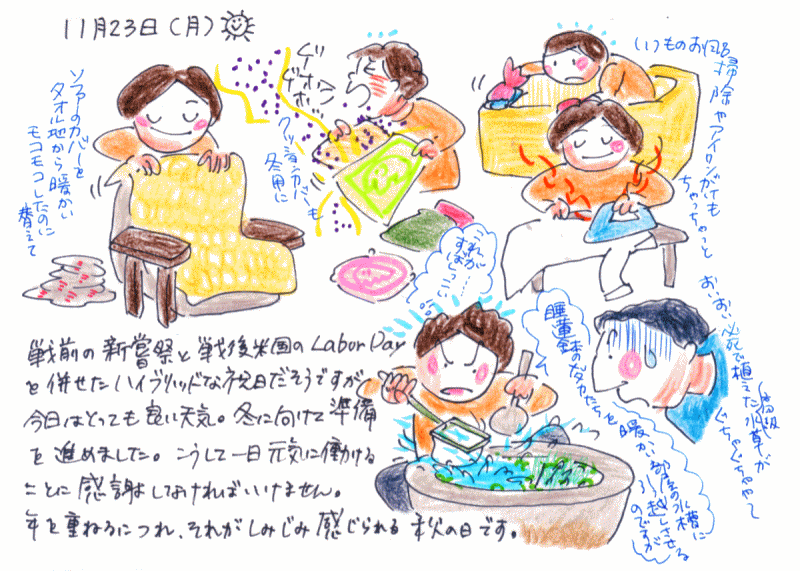 11月23日(月)
ソファーのカバーを
タオル地から暖かい
モコモコしたのに
替えて
ゲ
ゲホ
ゲホ
ゴホ
クッションカバーも
冬用に
いつものお風呂
掃除やアイロンがけも
ちゃっちゃっと
これが
すばしっこい…
睡蓮鉢の
メダカたちを
暖かい部屋の水槽に
引っ越しさせる
のですが
おいおい必死で植えた水草が
ぐちゃぐちゃや〜
戦前の新嘗祭と戦後米国のLabor Day
を併せたハイブリッドな祝日だそうですが、
今日はとっても良い天気。冬に向けて準備
を進めました。こうして一日元気に働ける
ことに感謝しなければいけません。
年を重ねるにつれ、それがしみじみ感じられる秋の日です。